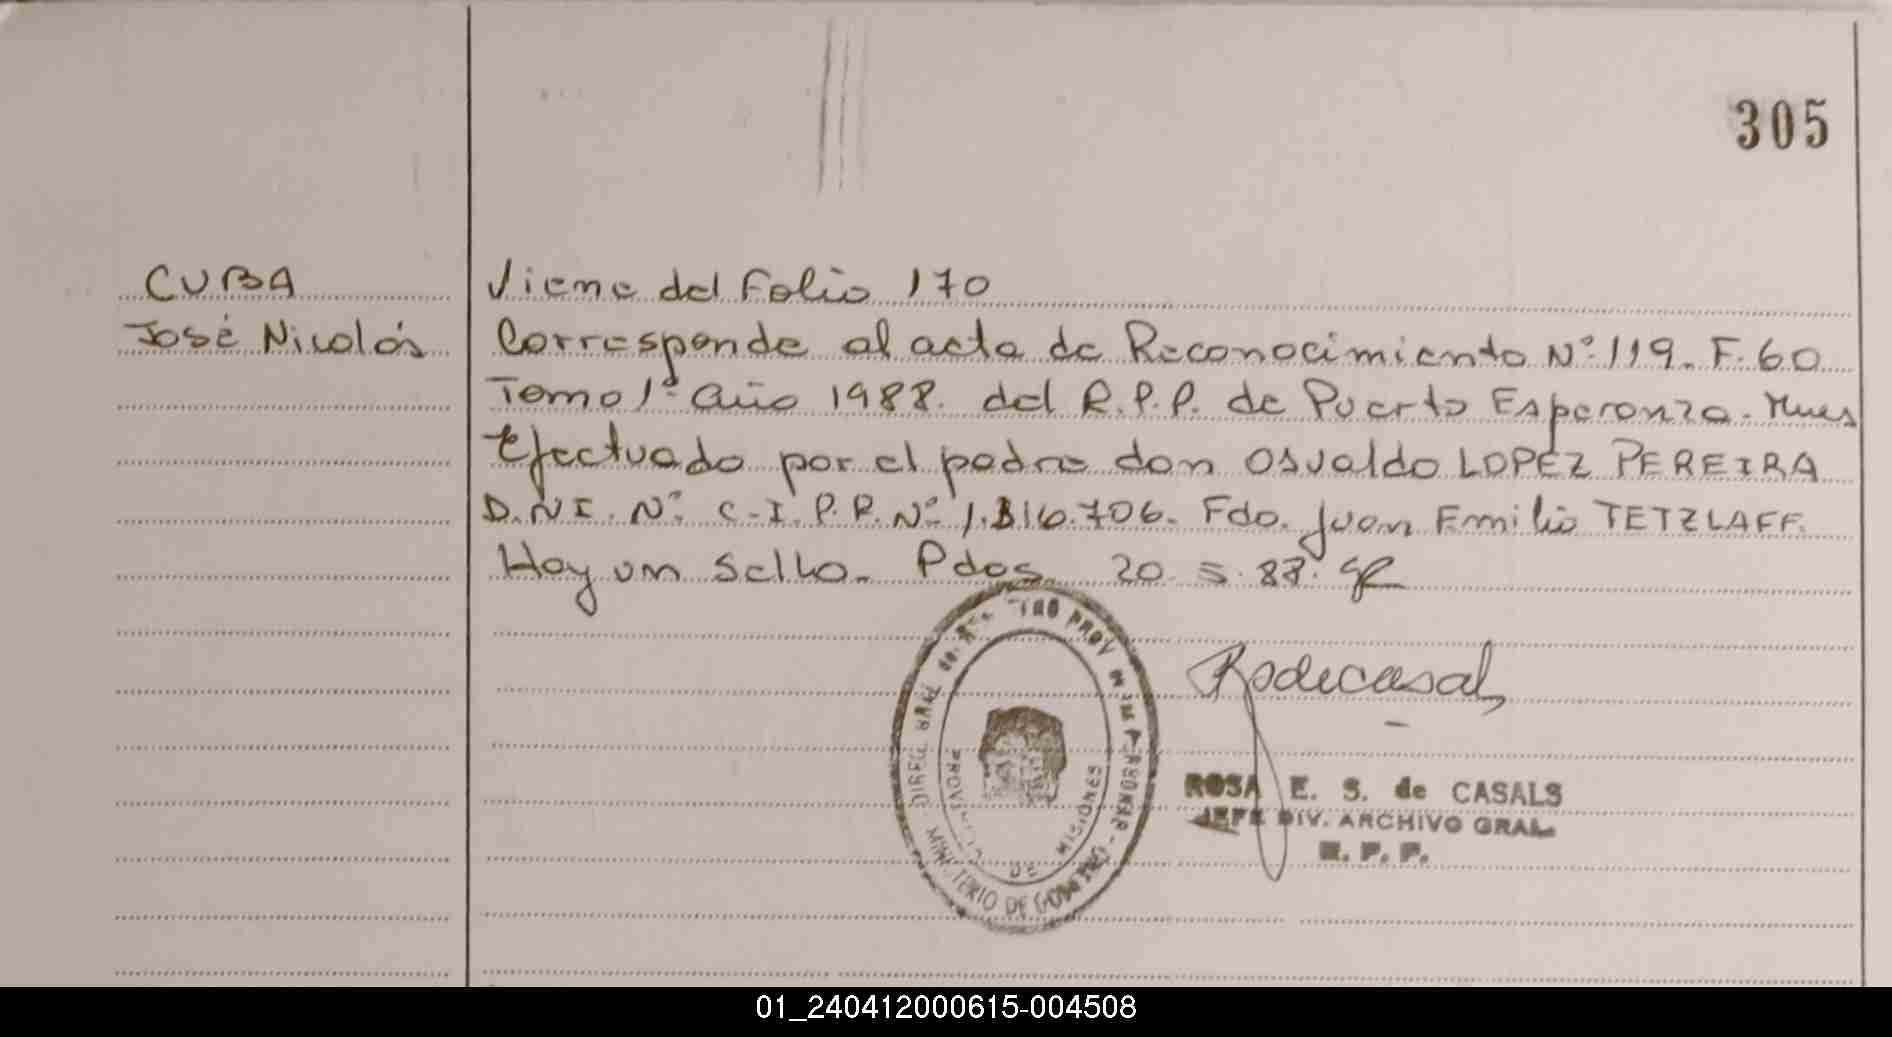 305
CUBA
José Nicolás
Viene del Folio 170
Corresponde al acta de Reconocimiento Nº 119. F. 60
Tomo 1º año 1988. del R.P.P. de Puerto Esperanza. Mnes
Efectuado por el padre don Osvaldo LOPEZ PEREIRA
D.N.I. Nº C.I. P.P. Nº 1.316.706. Fdo. Juan Emilio TETZLAFF.
Hay un sello. Pdos. 20. 5. 88.
Rodecasals
PROVINCIA DE MISIONES
MINISTERIO DE GOBIERNO
ROSA E. S. de CASALS
JEFE DIV. ARCHIVO GRAL
R. P. P.
01_240412000615-004508